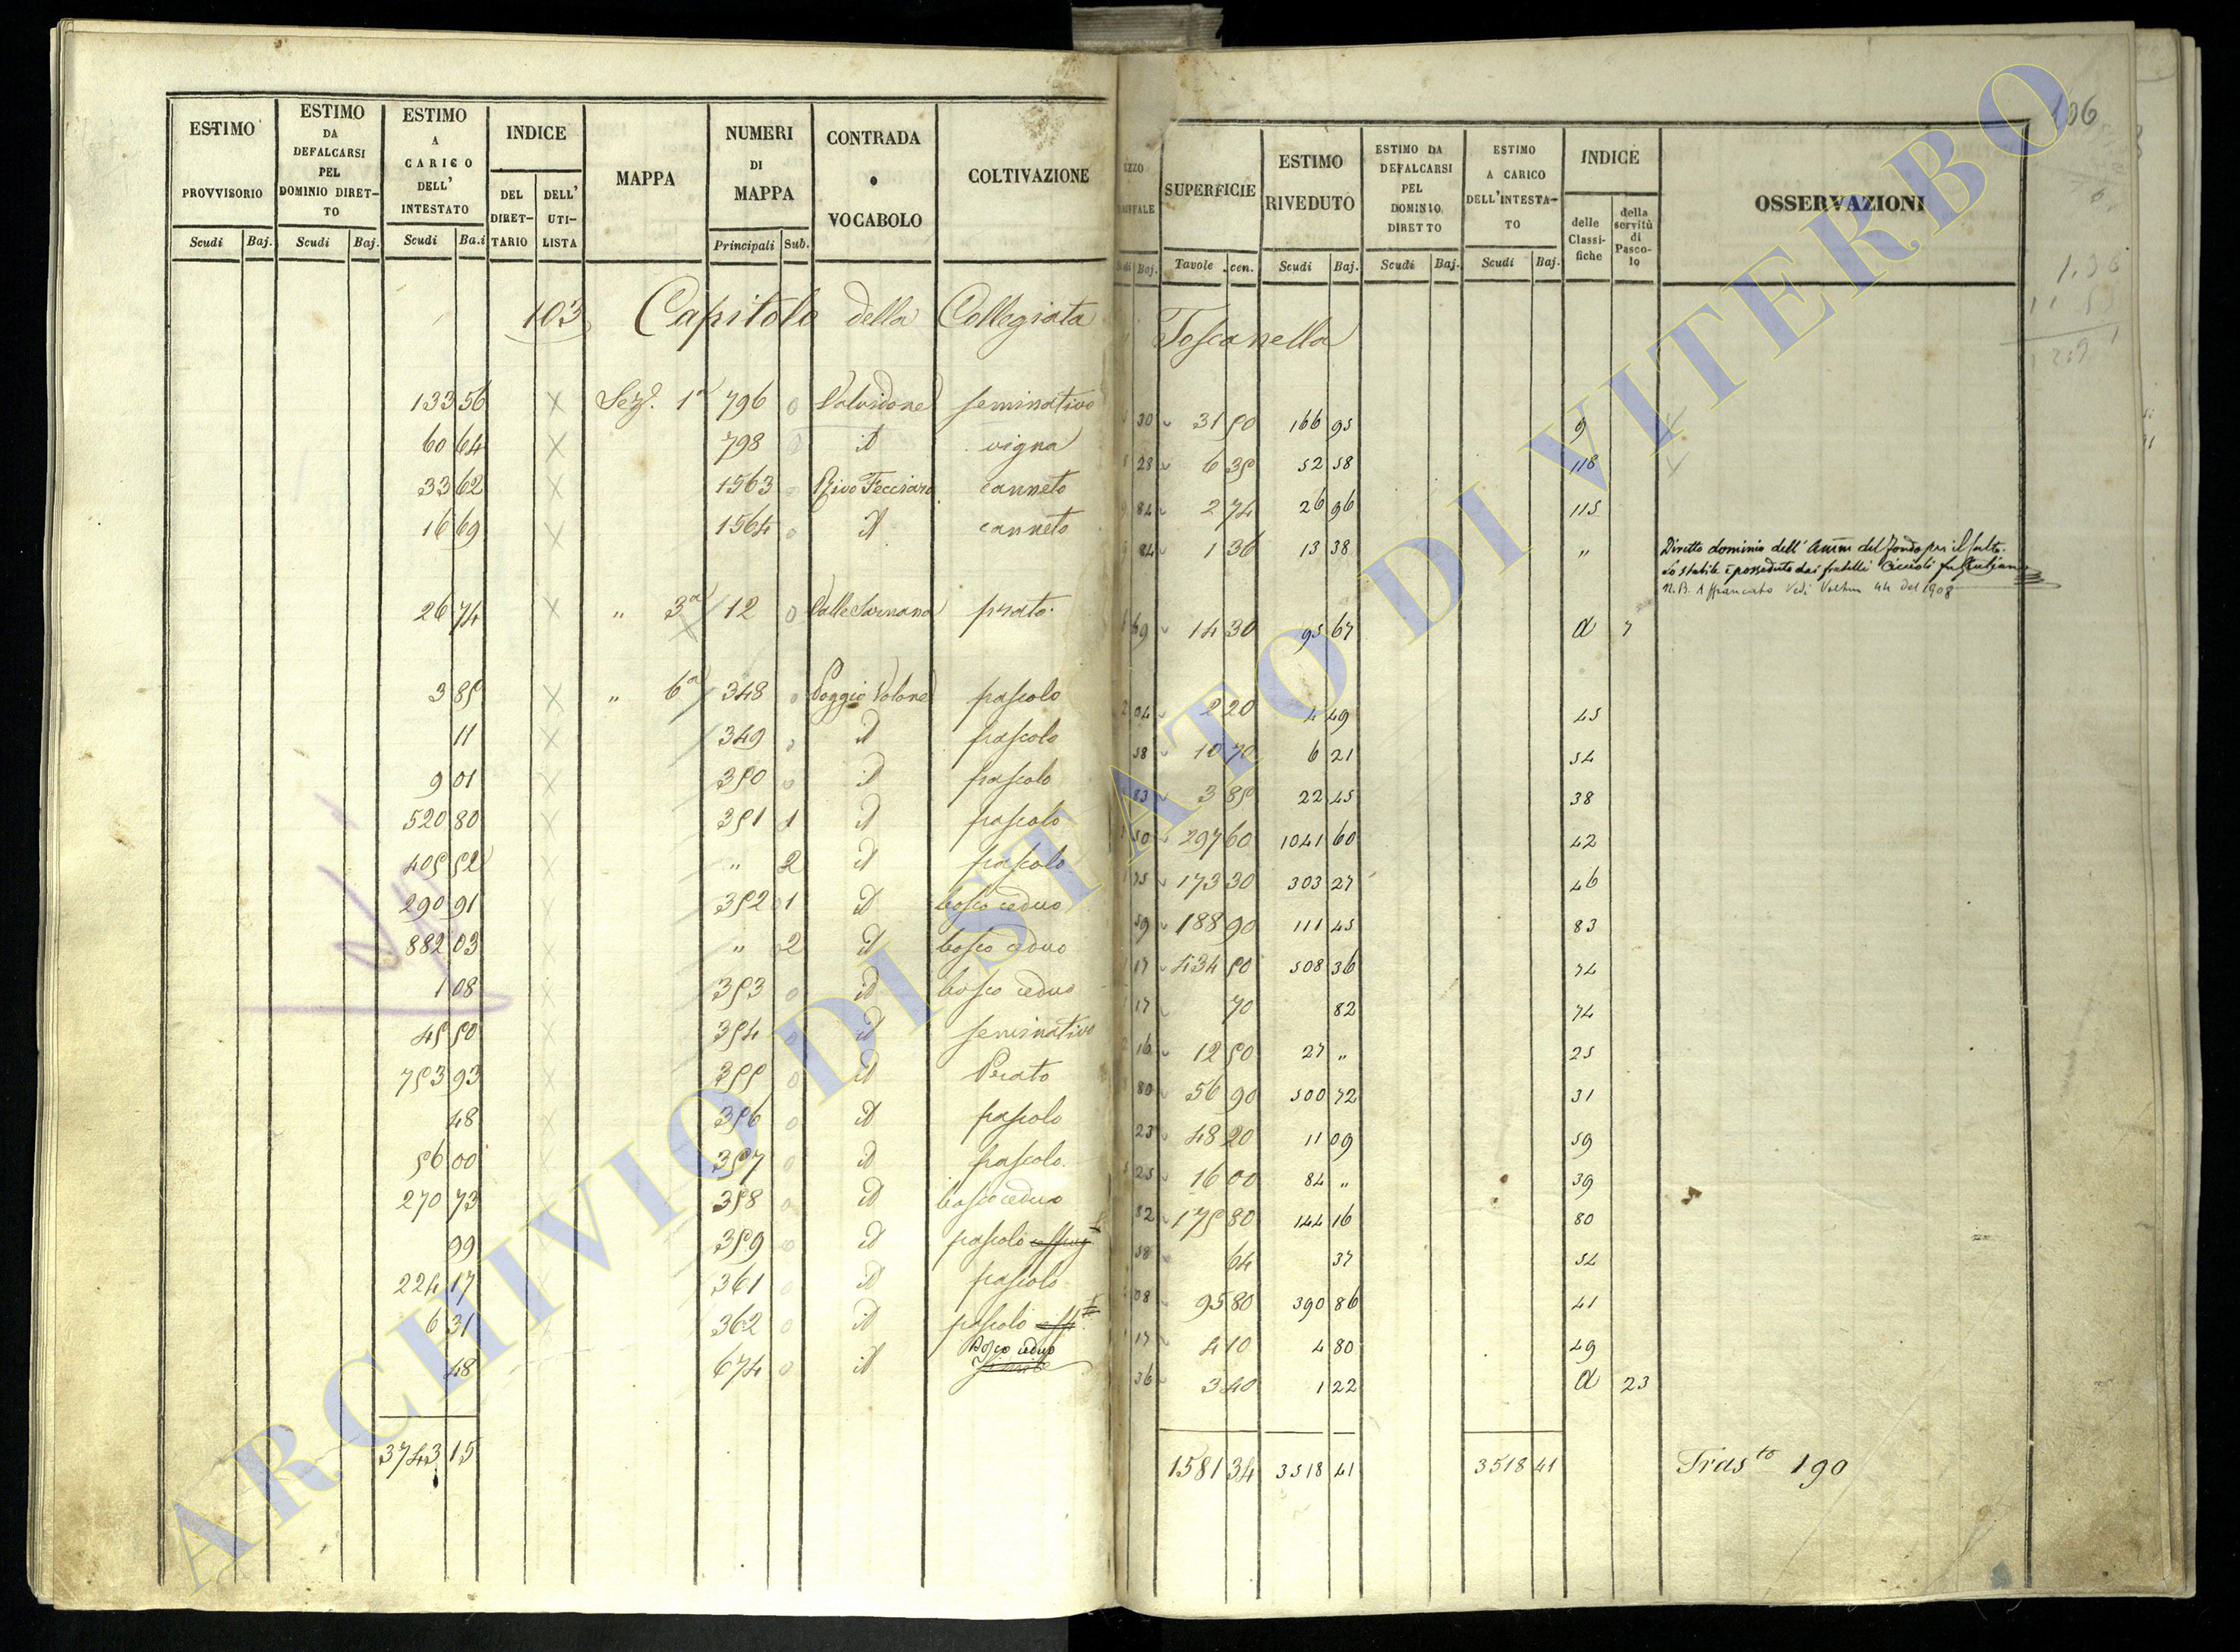 106
ESTIMO PROVVISORIO
ESTIMO DA DEFALCARSI PEL DOMINIO DIRETTO
ESTIMO A CARICO DELL' INTESTATO
INDICE
DEL DIRETTARIO
DELL' UTILISTA
MAPPA
NUMERI DI MAPPA
CONTRADA o VOCABOLO
COLTIVAZIONE
Scudi Baj. Scudi Baj. Scudi Ba.i Principali Sub.
SUPERFICIE
ESTIMO RIVEDUTO
ESTIMO DA DEFALCARSI PEL DOMINIO DIRETTO
ESTIMO A CARICO DELL'INTESTATO
INDICE
delle Classifiche
della servitù di Pascolo
OSSERVAZIONI
Baj. Tavole cen. Scudi Baj. Scudi Baj. Scudi Baj.
103 Capitolo della Collegiata Toscanella
133 56 X Sez. 1a 796 0 Valvidone seminativo 30 31 50 166 95 9
60 64 X 798 0 id vigna 28 6 35 52 58 118
33 62 X 1563 0 Rivo canneto 84 2 74 26 96 115
16 69 X 1564 0 id canneto 84 1 36 13 38 "
Diretto dominio dell' Amm del fondo per il culto.
Lo stabile è posseduto dai fratelli Ciccioli fu Giuliano
N.B. Affrancato Vedi Voltura 44 del 1908
26 74 X " 3a 12 0 prato 69 14 30 95 67 a 7
3 85 X " 6a 348 0 Poggio Volone pascolo 2 04 2 20 4 49 45
11 X 349 0 id pascolo 58 10 70 6 21 54
9 01 X 350 0 id pascolo 83 3 85 22 45 38
520 80 X 351 1 id pascolo 50 297 60 1041 60 42
405 52 X " 2 id pascolo 1 75 173 30 303 27 46
290 91 X 352 1 id bosco ceduo 59 188 90 111 45 83
882 03 X " 2 id bosco ceduo 1 17 434 50 508 36 74
1 08 X 353 0 id bosco ceduo 1 17 70 82 74
45 50 X 354 0 id seminativo 2 16 12 50 27 " 25
753 93 X 355 0 id Prato 80 56 90 500 72 31
48 X 356 0 id pascolo 23 48 20 11 09 59
56 00 X 357 0 id pascolo 5 25 16 00 84 " 39
270 73 358 0 id bosco ceduo 82 175 80 144 16 80
99 359 0 id pascolo 58 64 37 54
224 17 361 0 id pascolo 08 95 80 390 86 41
6 31 362 0 id pascolo 1 17 4 10 4 80 49
48 674 0 id Bosco ceduo 36 3 40 1 22 a 23
3743 15 1581 34 3518 41 3518 41 Tras.to 190
ARCHIVIO DI STATO DI VITERBO